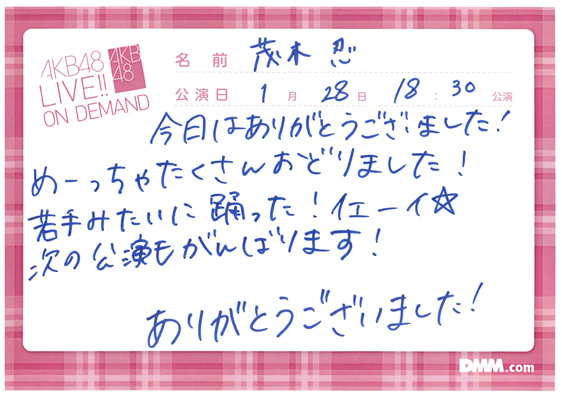 AKB48
LIVE!!
ON DEMAND
AKB
48
名前 茂木 忍
公演日 1月28日 18:30公演
今日はありがとうございました!
めーっちゃたくさんおどりました!
若手みたいに踊った!イエーイ☆
次の公演もがんばります!
ありがとうございました!
DMM.com